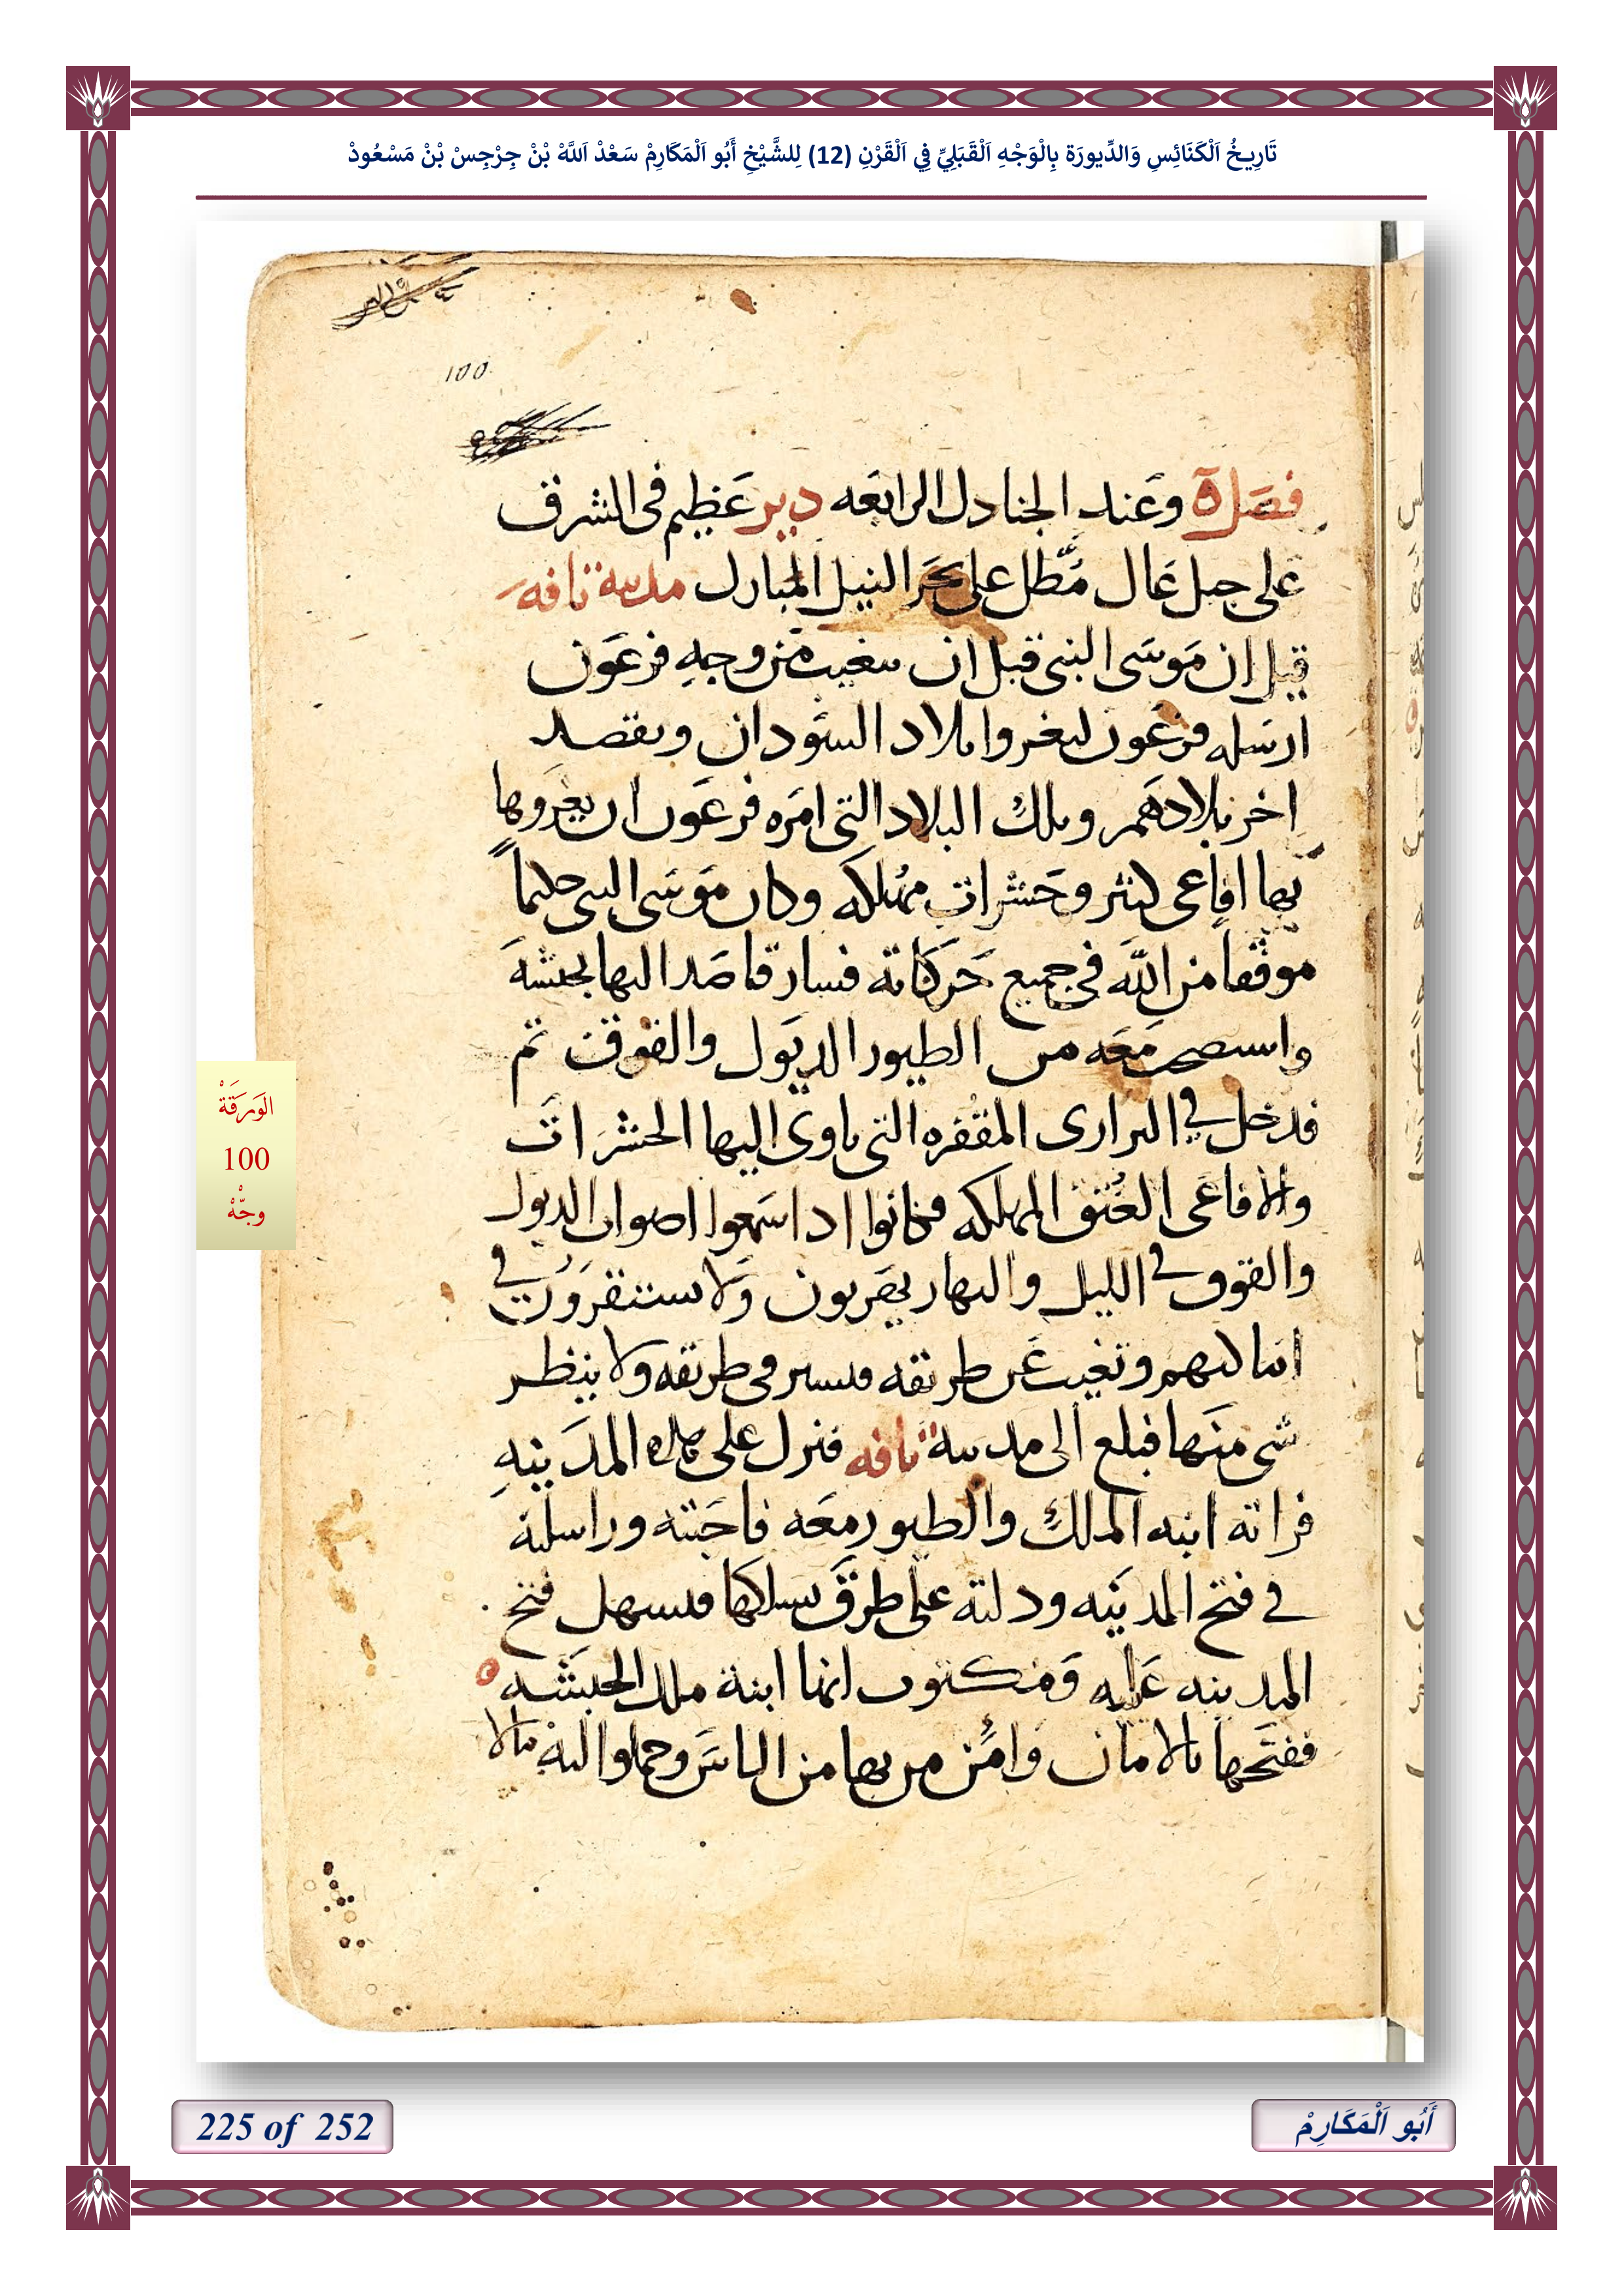 تَارِيخُ اَلْكَنَائِسِ وَالدِّيورَة بِالْوَجْهِ اَلْقَبَلِيِّ فِي اَلْقَرْنِ (12) لِلشَّيْخِ أَبُو اَلْمَكَارِمْ سَعْدْ اَللَّهْ بْنْ جِرْجِسْ بْنْ مَسْعُودْ
100
وعند الجنادل الرابعه دير عظيم في الشرق
على جبل عال مُطل على بحر النيل المبارك مدينة نافه
قيل ان موسى النبي قبل ان فرعون
ارسله فرعون ليغزوا بلاد السودان ويقصد
اخر بلادهم وتلك البلاد التي امره فرعون ان يغزوها
بها افاعي كثير وحشرات مهلكه وكان موسى النبي حكيماً
موفقاً من الله في جميع حركاته فسار قاصدا اليها بجيشه
واستصحب معه من الطيور الديوك والقوق ثم
فدخل في البراري المقفره التي ياوي اليها الحشرات
والافاعي العُتق المهلكه فكانوا اذا سمعوا اصوات الديوك
والقوق في الليل والنهار يهربون ولا يستقرون في
اماكنهم وتغيب عن طريقه فيسير في طريقه ولا ينظر
شي منها فبلغ الى مدينة نافه فنزل على المدينه
فراته ابنه الملك والطيور معه فاحبته وراسلته
في فتح المدينه ودلته على طرق يسلكها فيسهل فتح
المدينه عليه ومكتوب انها ابنة ملك الحبشه
ففتحها بالامان وامن من بها من الناس وحملوا اليه مالا
الوَرَقَةْ
100
وجّهْ
225 of 252
أَبُو اَلْمَكَارِمْ